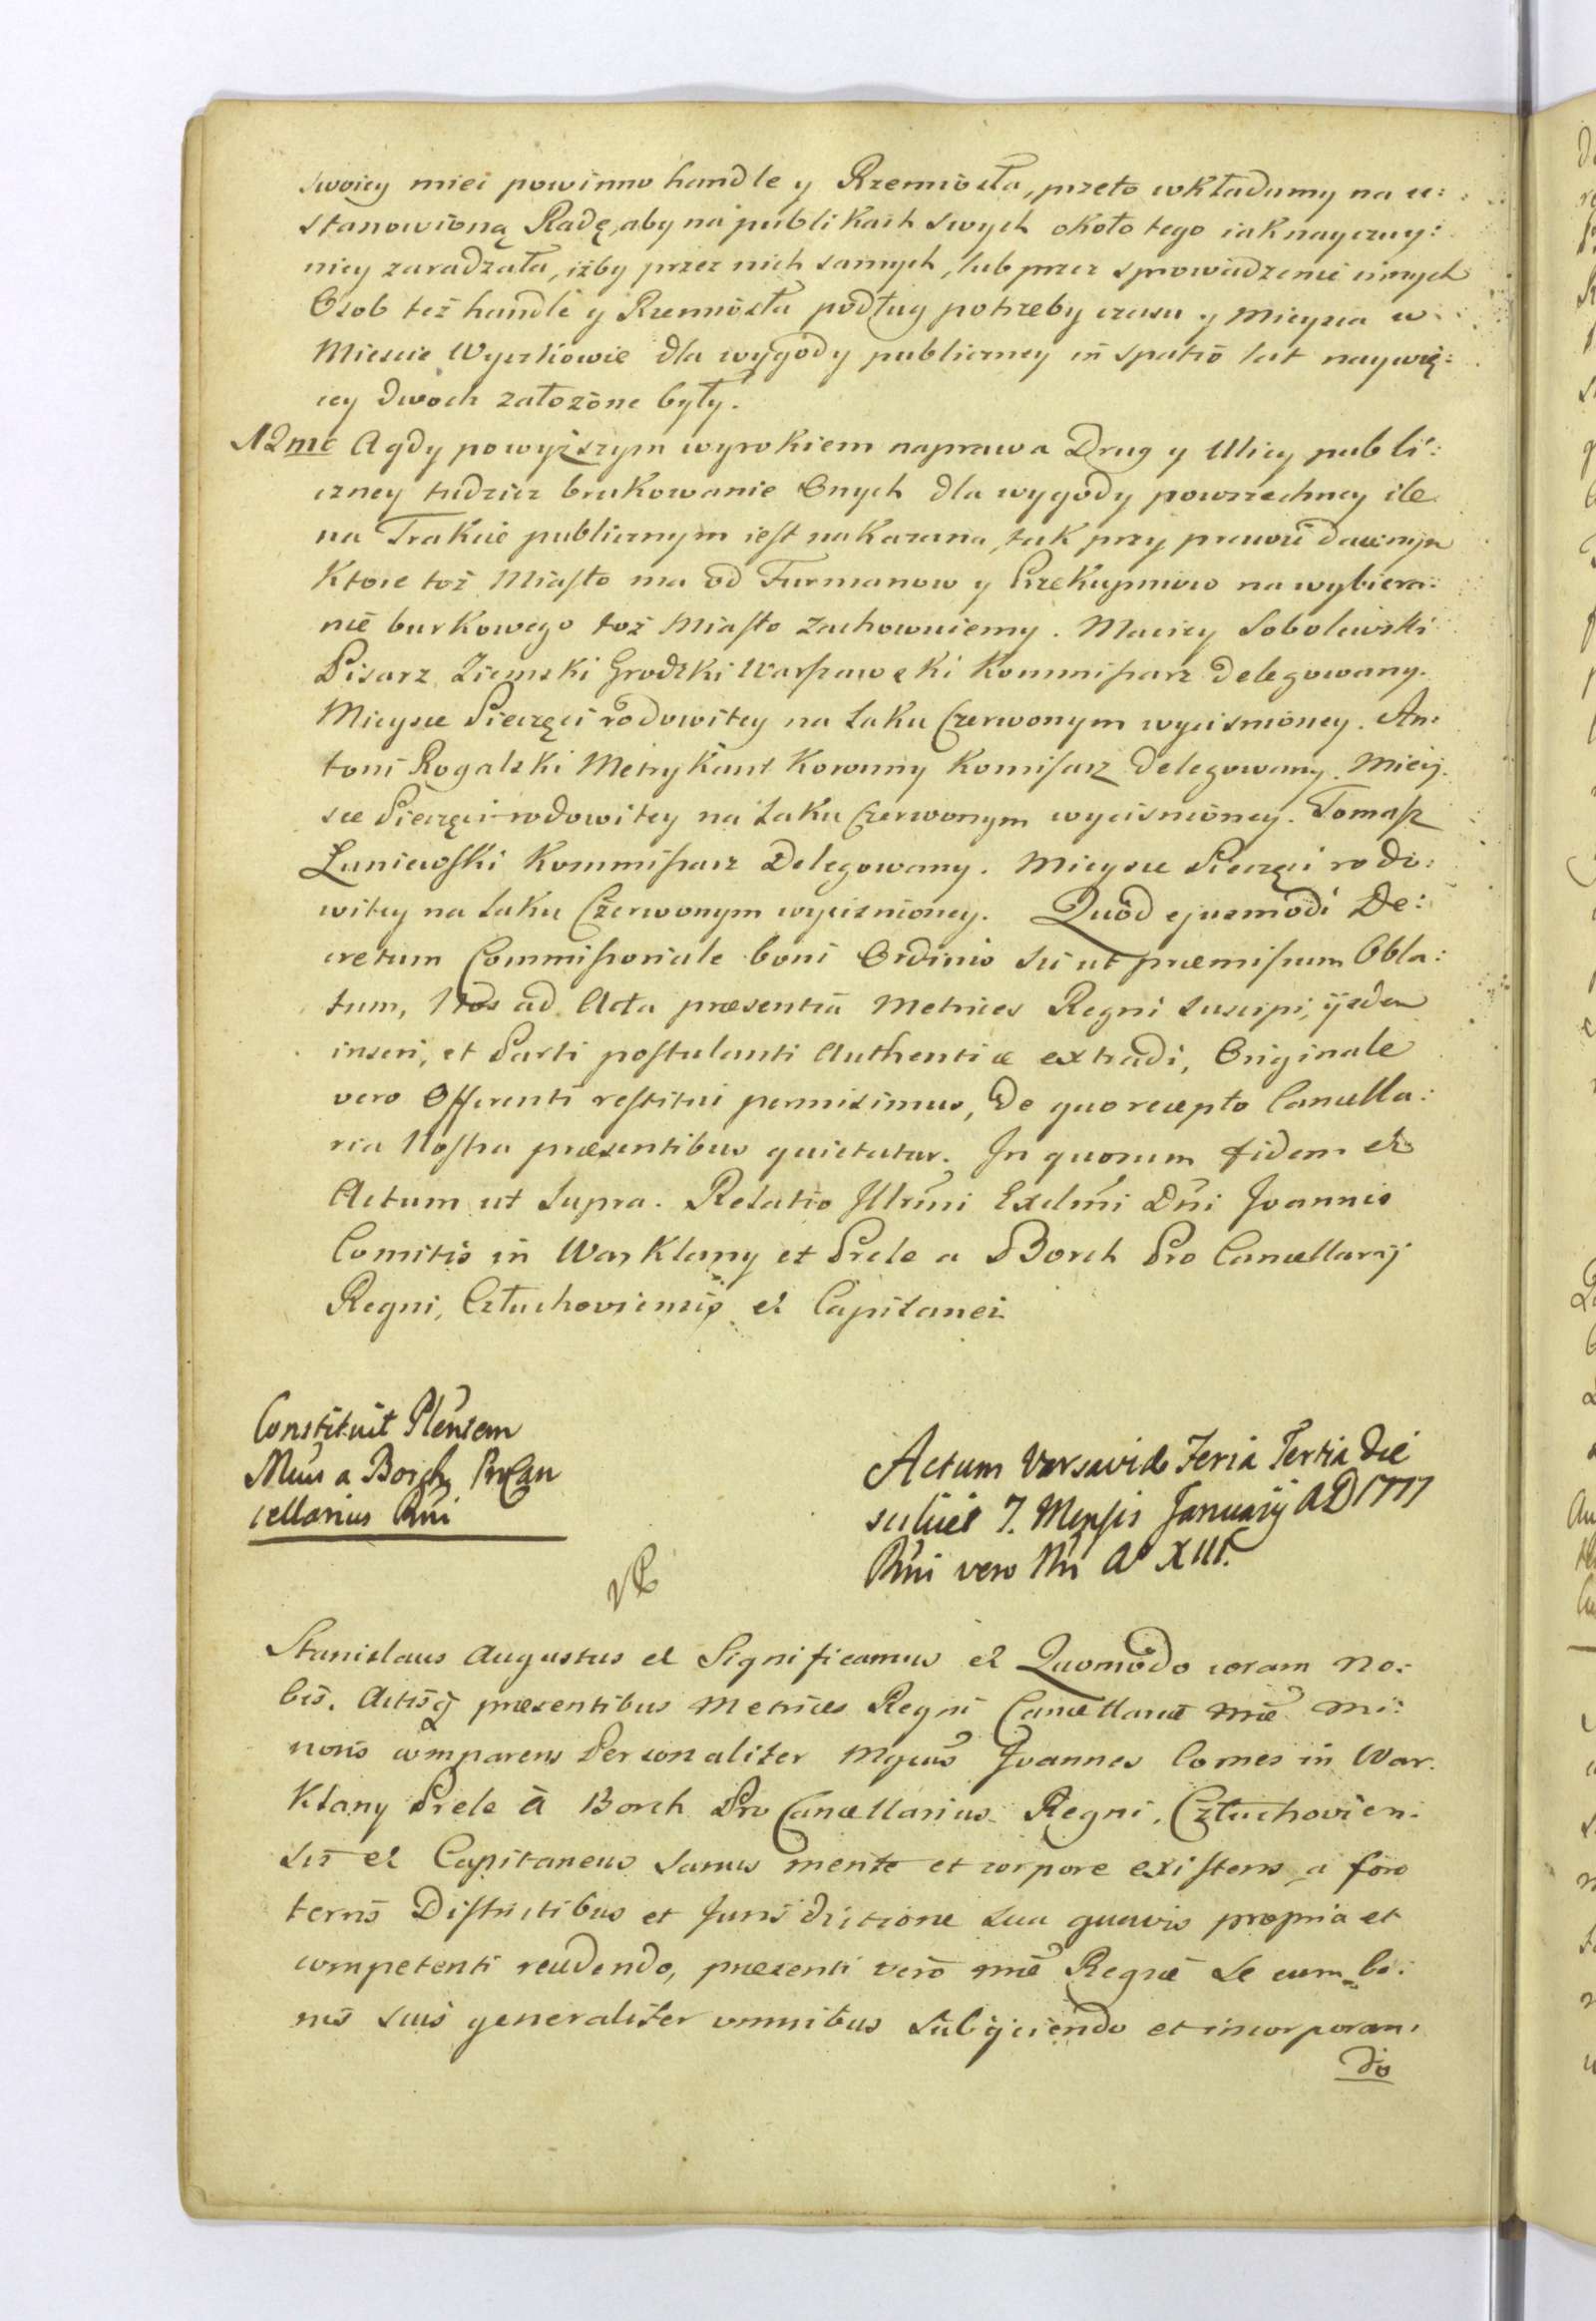 swoiey mieć powinno handle y Rzemiosła, przeto wkładamy na u:
stanowioną Radę, aby na publikach swych około tego iaknayczuy:
niey zaradzała, iżby przez nich samych, lub przez sprowadzenie innych
Osob też handle y Rzemiosła podług potrzeby czasu y mieysca w
Miescie Wyszkowie dla wygody publiczney in spatio lat naywię:
cey dwoch założone były.
12me A gdy powyższym wyrokiem naprawa Drog y Ulicy publi:
czney tudzież brukowanie Onych dla wygody powszechney ile
na Trakcie publicznym iest nakazana, tak przy prawie dawnym
Ktore toż Miasto ma od Furmanow y Przekupniow na wybiera:
nie burkowego toż Miasto zachowuiemy. Maciey Sobolewski
Pisarz Ziemski Grodzki Warszawski Kommissarz Delegowany.
Mieysce Pieczęci rodowitey na Laku Czerwonym wycisnioney. An:
toni Rogalski Metrykant Koronny Komisarz Delegowany. Miey:
sce Pieczęci rodowitey na Laku Czerwonym wycisnioney. Tomasz
Łuniewski Kommissarz Delegowany. Mieysce Pieczęci rodo:
witey na Laku Czerwonym wycisnioney. Quod ejusmodi De:
cretum Commissoriale boni Ordinis sicut præmissum Obla:
tum, Nos ad Acta præsentia Metrices Regni suscipi, ijsdem
inseri, et Parti postulanti Authenticæ extradi, Originale
vero Offerenti restitui permisimus, De quo recepto Cancella:
ria Nostra præsentibus quietatur. In quorum fidem et
Actum ut Supra. Relatio Illrmi Exclmi Dni Joannis
Comitis in Warklany et Prele a Borch Pro Cancellarij
Regni, Człuchoviensis et Capitanei
Constituit Plensem
Mcus a Borch ProCan
cellarius Rni
Actum Varsaviæ Feria Tertia Die
scilicet 7. Mensis Januarij AD 1777
Rni vero Nri Ao XIII.
Stanislaus Augustus et Significamus et Quomodo coram No:
bis. Actisq præsentibus Metrices Regni Cancellariæ nræ Mi:
noris comparens Personaliter Mgcus Joannes Comes in War:
Klany Prele à Borch Pro Cancellarius Regni, Człuchovien:
sis et Capitaneus sanus mente et corpore existens, a foro
terris Districtibus et Jurisdictione sua quavis propria et
competenti recedendo, præsenti vero nræ Regiæ se cum bo:
nis suis generaliter omnibus subijciendo et incorporan:
do